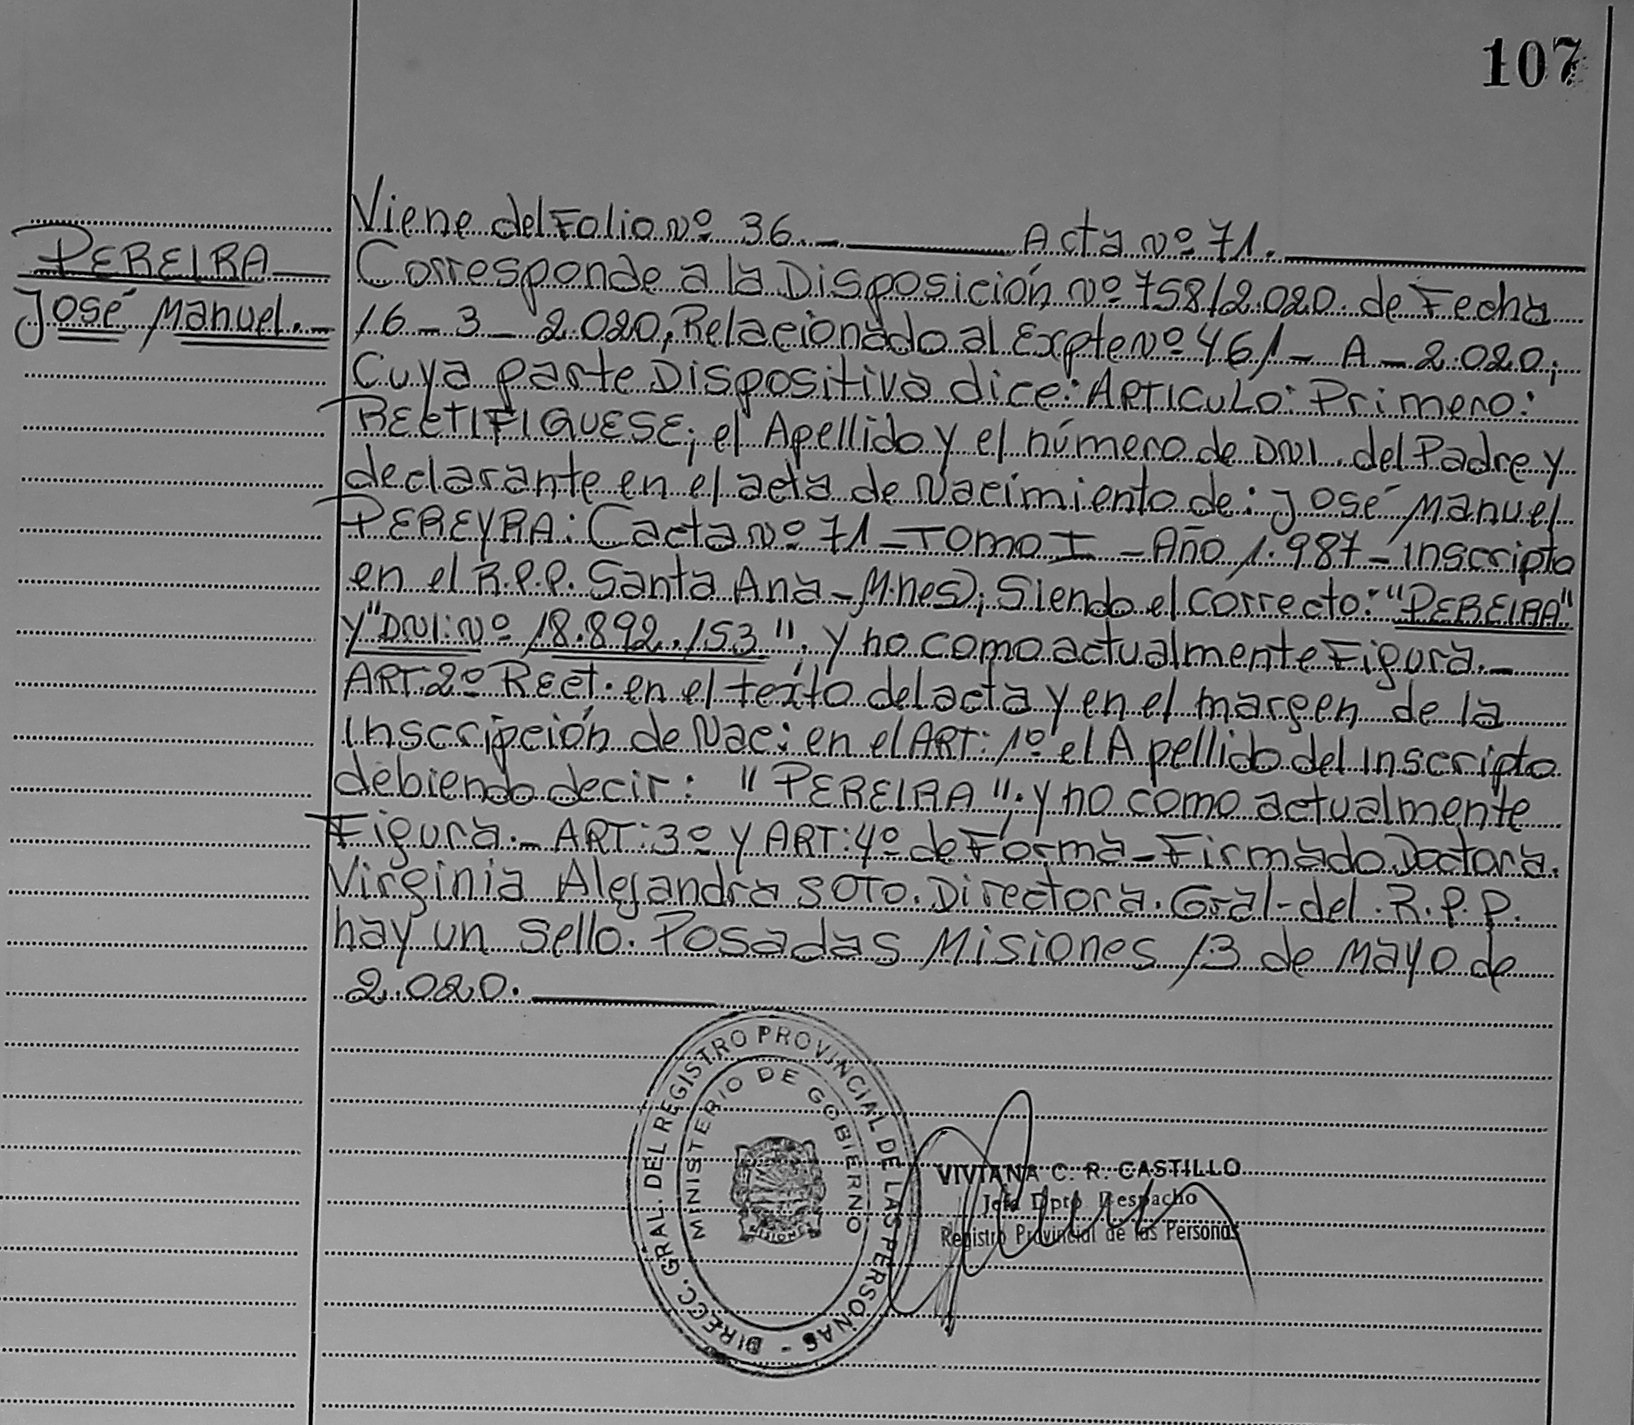 107
PEREIRA
José Manuel.-
Viene del Folio Nº 36.- Acta Nº 71.
Corresponde a la Disposición Nº 758/2.020. de Fecha
16-3-2.020, Relacionado al Expte Nº 461-A-2.020;
Cuya parte Dispositiva dice: ARTICULO: Primero:
RECTIFIQUESE; el Apellido y el número de DNI. del Padre y
declarante en el acta de Nacimiento de: José Manuel
PEREYRA: (acta Nº 71-TOMO I-Año 1.987-inscripto
en el R.P.P. Santa Ana-Mnes); Siendo el correcto: "PEREIRA"
y "DNI: Nº 18.892.153"; y no como actualmente Figura.-
ART: 2º Rect. en el texto del acta y en el margen de la
inscripción de Nac; en el ART: 1º el Apellido del inscripto
debiendo decir: "PEREIRA"; y no como actualmente
Figura.- ART: 3º y ART: 4º de Forma-Firmado Doctora.
Virginia Alejandra SOTO. Directora. Gral-del. R.P.P.
hay un sello. Posadas Misiones 13 de Mayo de
2.020.
DIRECC. GRAL. DEL REGISTRO PROVINCIAL DE LAS PERSONAS -
MINISTERIO DE GOBIERNO
MISIONES
VIVIANA C. R. CASTILLO
Jefa Dpto Despacho
Registro Provincial de las Personas